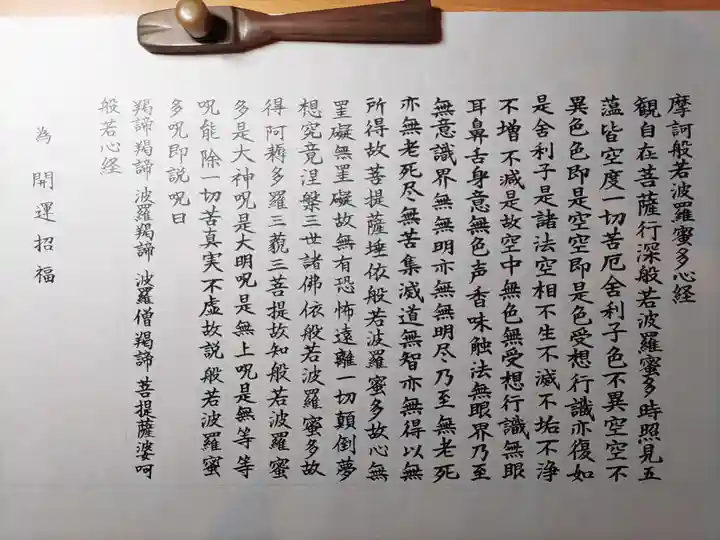 摩訶般若波羅蜜多心経
観自在菩薩行深般若波羅蜜多時照見五
蕰皆空度一切苦厄舍利子色不異空空不
異色色即是空空即是色受想行識亦復如
是舍利子是諸法空相不生不滅不垢不浄
不増不減是故空中無色無受想行識無眼
耳鼻舌身意無色声香味触法無眼界乃至
無意識界無無明亦無無明尽乃至無老死
亦無老死尽無苦集滅道無智亦無得以無
所得故菩提薩埵依般若波羅蜜多故心無
罣礙無罣礙故無有恐怖遠離一切顛倒夢
想究竟涅槃三世諸佛依般若波羅蜜多故
得阿耨多羅三藐三菩提故知般若波羅蜜
多是大神呪是大明呪是無上呪是無等等
呪能除一切苦真実不虚故説般若波羅蜜
多呪即説呪曰
羯諦羯諦 波羅羯諦 波羅僧羯諦 菩提薩婆呵
般若心経
為開運招福